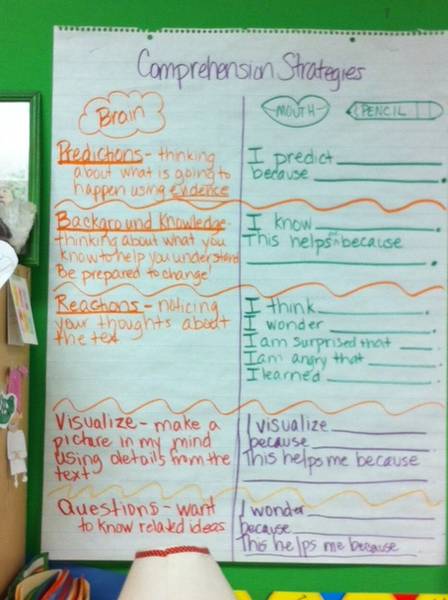 Comprehension Strategies
Brain
MOUTH
PENCIL
Predictions - thinking
about what is going to
happen using evidence
I predict
because
Background Knowledge-
thinking about what you
know to help you understand
Be prepared to change!
I know
This helps me because
Reactions - noticing
your thoughts about
the text
I think
I wonder
I am surprised that
I am angry that
I learned
Visualize - make a
picture in my mind
using details from the
text
I visualize
because
This helps me because
Questions - want
to know related ideas
I wonder
because
This helps me because